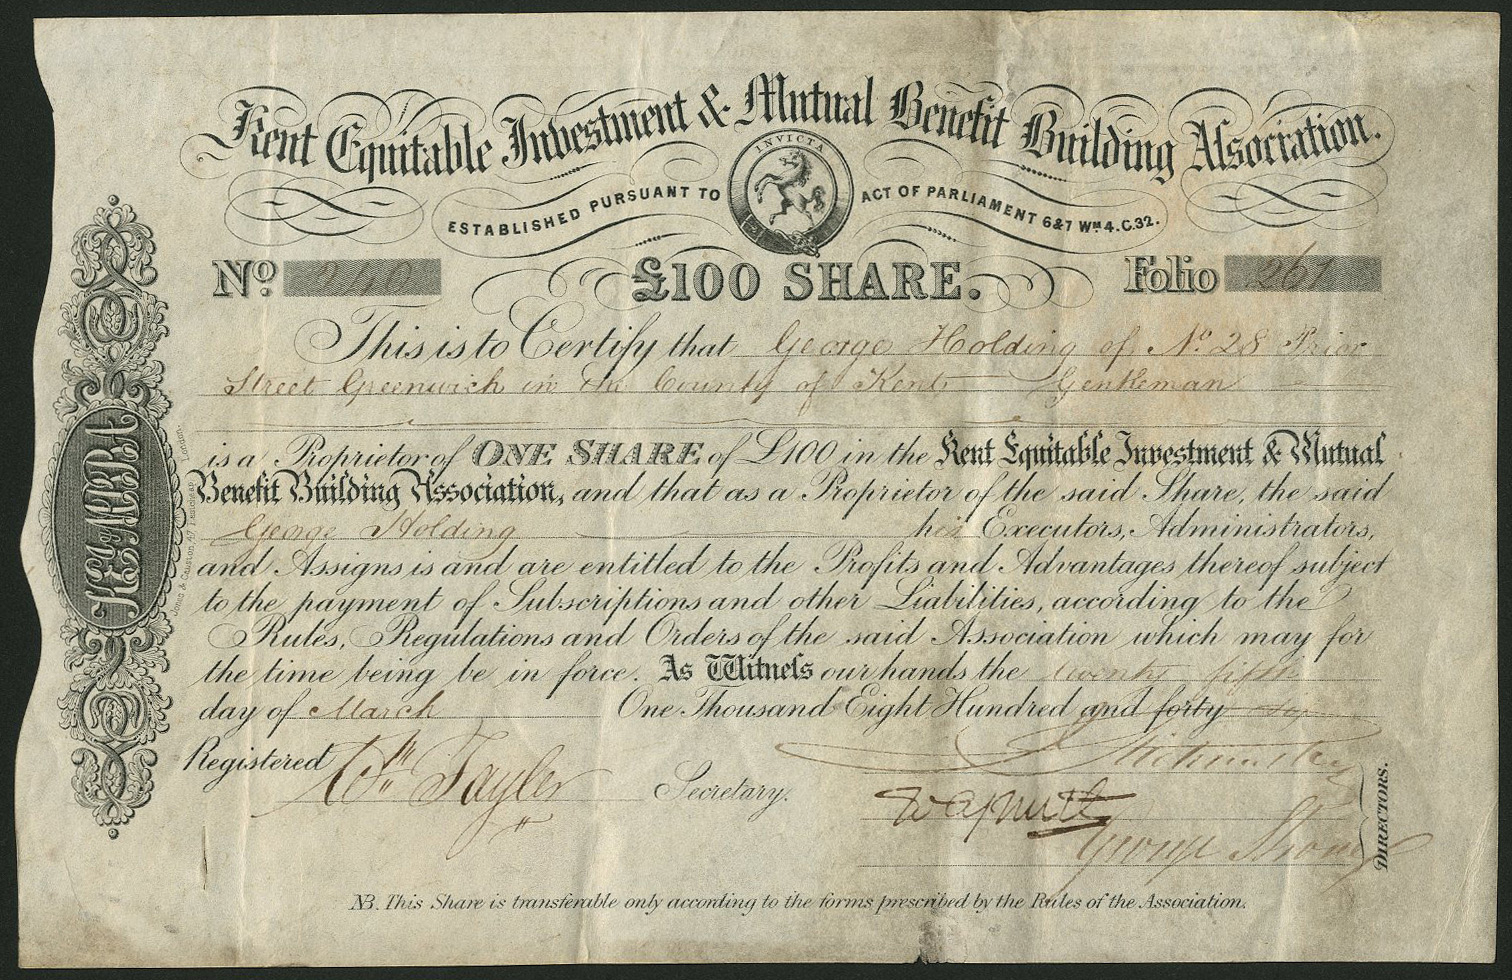 Kent Equitable Investment & Mutual Benefit Building Association.
INVICTA
ESTABLISHED PURSUANT TO ACT OF PARLIAMENT 6 & 7 Wm 4. C. 32.
No. 240 £100 SHARE. Folio 261
This is to Certify that George Holding of No. 28 Prior
Street Greenwich in the County of Kent Gentleman
is a Proprietor of ONE SHARE of £100 in the Kent Equitable Investment & Mutual
Benefit Building Association, and that as a Proprietor of the said Share, the said
George Holding his Executors, Administrators,
and Assigns is and are entitled to the Profits and Advantages thereof subject
to the payment of Subscriptions and other Liabilities, according to the
Rules, Regulations and Orders of the said Association which may for
the time being be in force. As Witness our hands the twenty fifth
day of March One Thousand Eight Hundred and forty six
Registered Wm Tayler Secretary.
George
DIRECTORS.
NB. This Share is transferable only according to the forms prescribed by the Rules of the Association.
KE&MBBA
London.